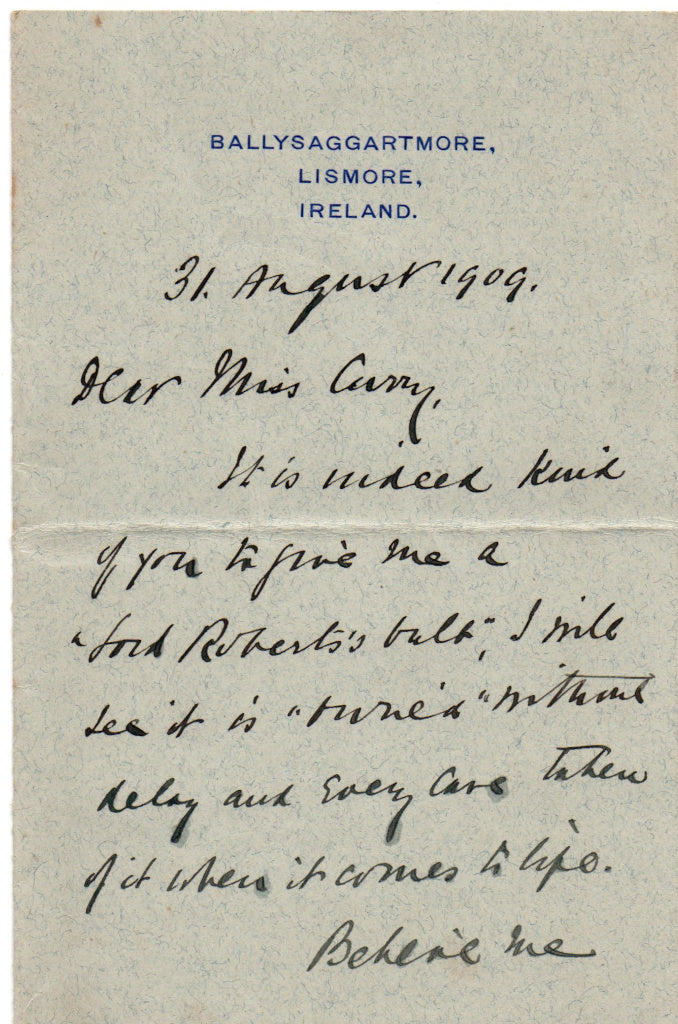 BALLYSAGGARTMORE,
LISMORE,
IRELAND.
31. August 1909.
Dear Miss Curry,
It is indeed kind
of you to give me a
"Lord Roberts's bulb", I will
see it is "buried" without
delay and every care taken
of it when it comes to life.
Believe me